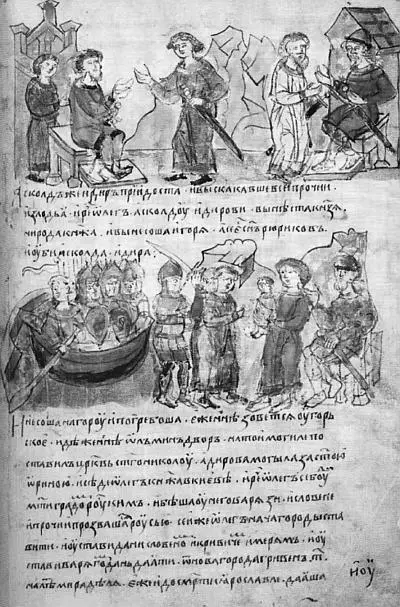 Асколдъ же и диръ прїидоста · и выскакавше вси прочии ·
из лодьа · и рє ѡлегъ асколдоу и дирови · вы нѣста кнѧзѧ ·
ни рода кнѧжа · и вынесоша игорѧ · а се єс̃нъ рюриковъ ·
и оубиша асколда и дира ·
И несоша на гороу и погребоша · еже нн̃ѣ зоветсѧ оугорь
ское · идѣже нн̃ѣ ѡлъминъ дворъ · на той могилѣ по
ставилъ црк̃вь ст̃го николоу · а дирова могыла за ст̃ою
ѡриною · и сѣде ѡлегъ кнѧжа в киевѣ · и рє ѡлегъ се боуди
мт̃и градомъ роускимъ · и бѣша оу него варѧзи · и словене
и прочии прозвашасѧ роусью · се же ѡлегъ нача городы ста
вити · и оустави дани словеномъ и кривичемъ и мерѧмъ · и оу
стави варѧгомъ дань даѧти · ѿ новагорода гривенъ · т̃ ·
на лѣт̾ мира дѣлѧ · еже и до смерти ꙗрославлѧ · даꙗша